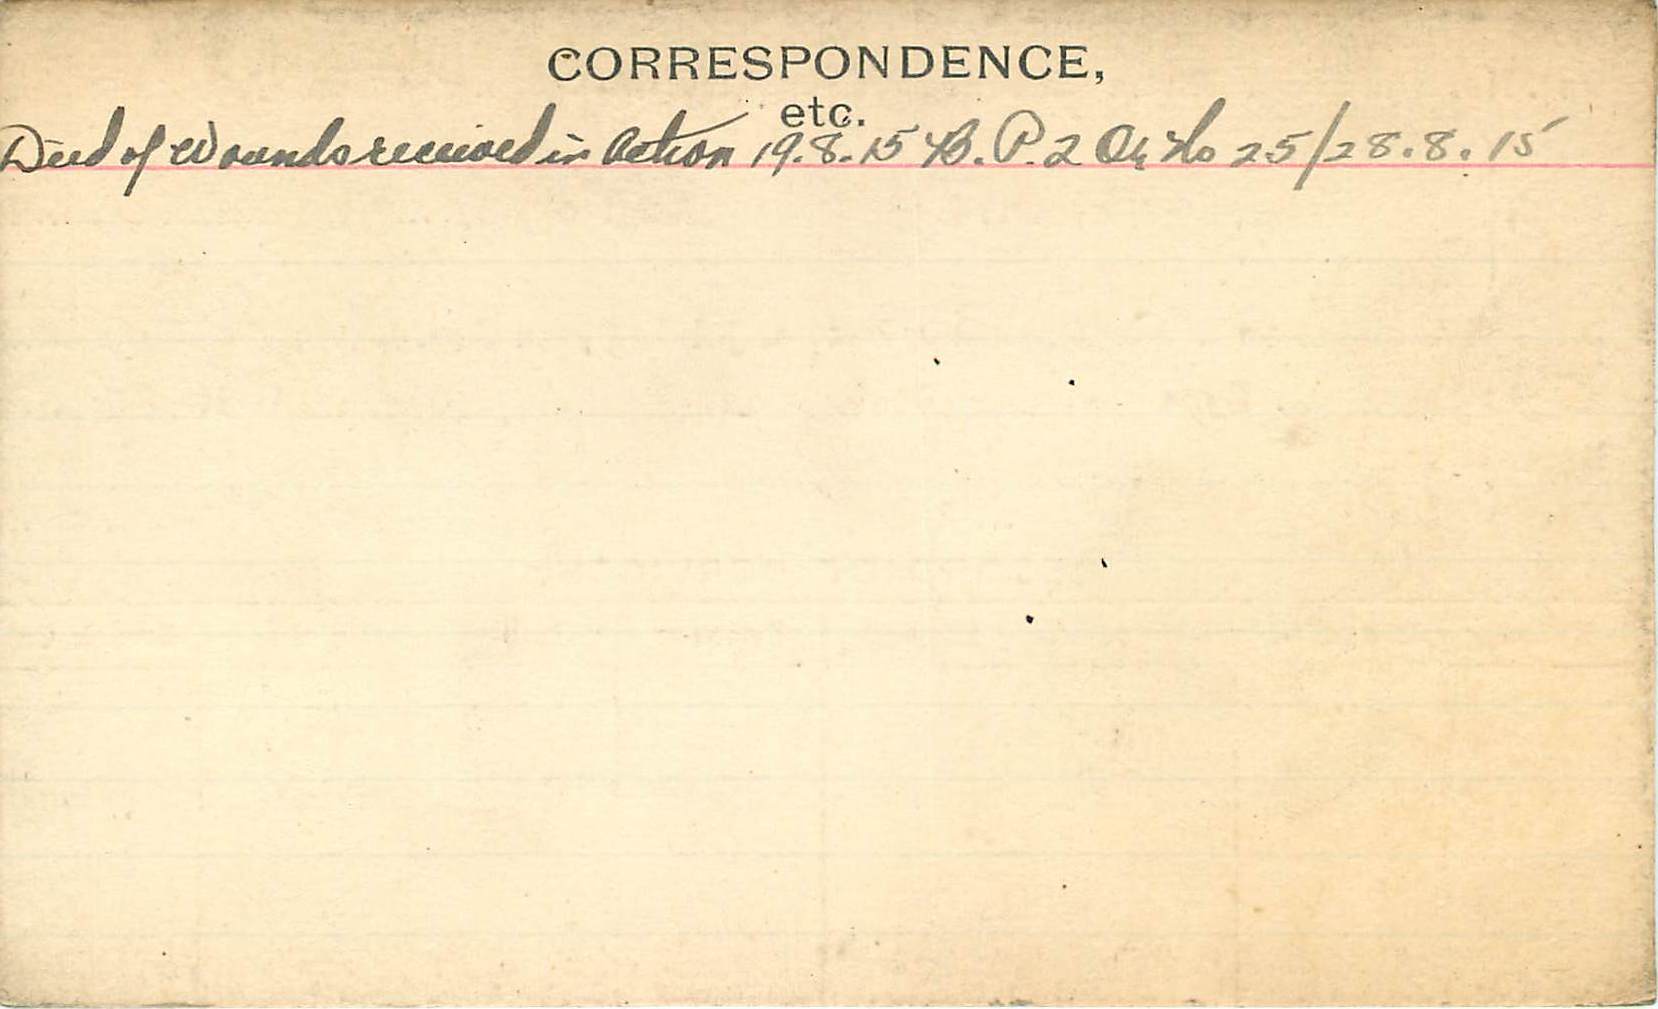 CORRESPONDENCE,
etc.
Died of Wounds received in Action 19.8.15 B. P. 2 Or No 25/28.8.15